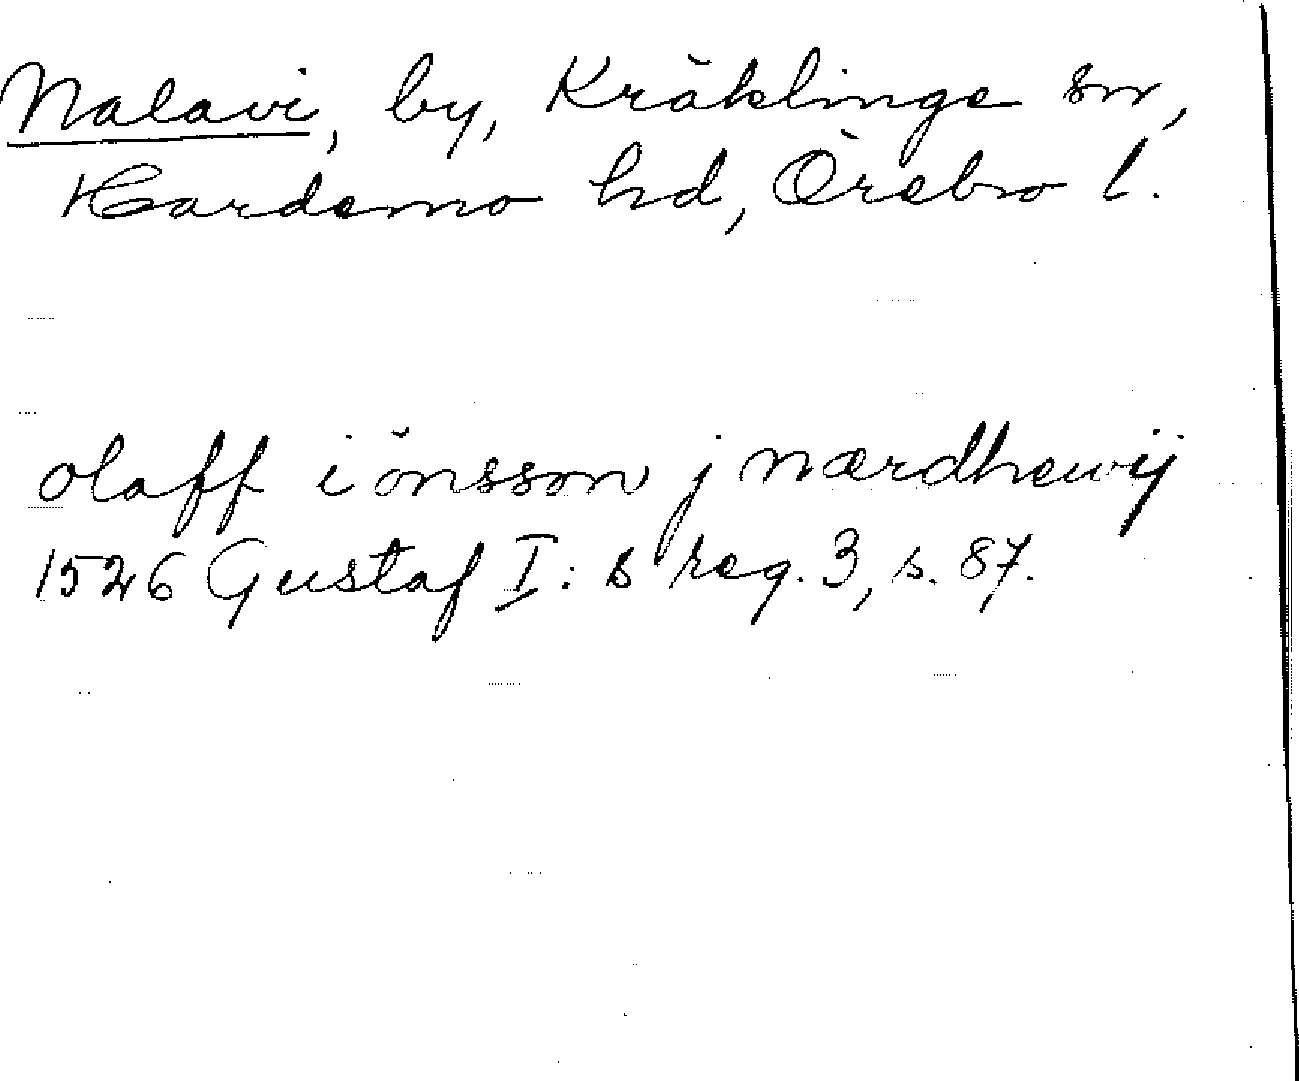 Nalavi, by, Kräklinge sn,
Hardemo hd, Örebro l.
olaff iönsson j nærdhewij
1526 Gustaf I: s reg. 3, s. 87.